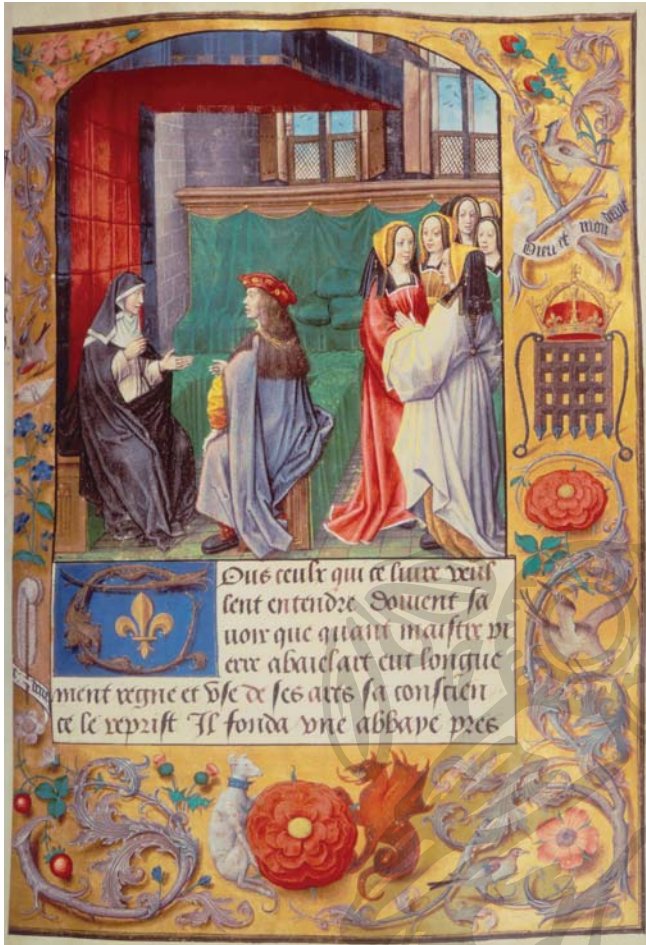 Dieu et mon
Tous ceulx qui ce liure veul
lent entendre Doiuent sa
uoir que quant maistre pi
erre abaielart eut longue
ment regne et vse de ses ars sa conscien
ce le reprist Il fonda vne abbaye pres